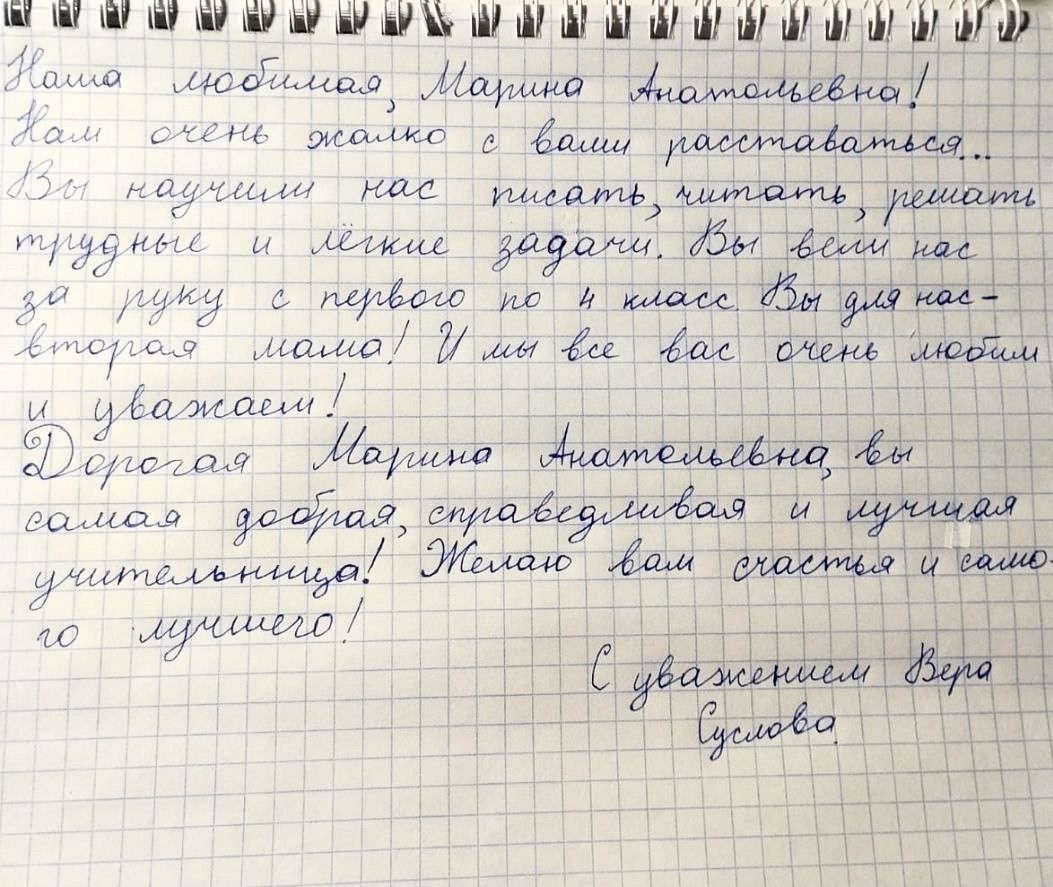 Наша любимая, Марина Анатольевна!
Нам очень жалко с вами расставаться...
Вы научили нас писать, читать, решать
трудные и лёгкие задачи. Вы вели нас
за руку с первого по 4 класс. Вы для нас -
вторая мама! И мы все вас очень любим
и уважаем!
Дорогая Марина Анатольевна, вы
самая добрая, справедливая и лучшая
учительница! Желаю вам счастья и само-
го лучшего!
С уважением Вера
Суслова.